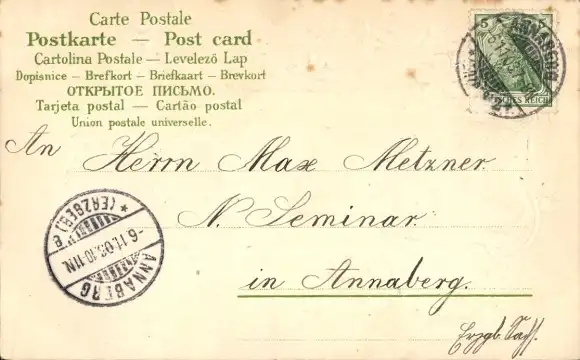 Carte Postale
Postkarte — Post card
Cartolina Postale — Levelező Lap
Dopisnice — Brefkort — Briefkaart — Brevkort
ОТКРЫТОЕ ПИСЬМО.
Tarjeta postal — Cartão postal
Union postale universelle.
5 5
ANNABERG
DEUTSCHES REICH
An Herrn Max Metzner.
N. Seminar.
in Annaberg.
Erzgb. Sachs.
ANNABERG
-6.11.03.10-11N.
* (ERZGEB.) e